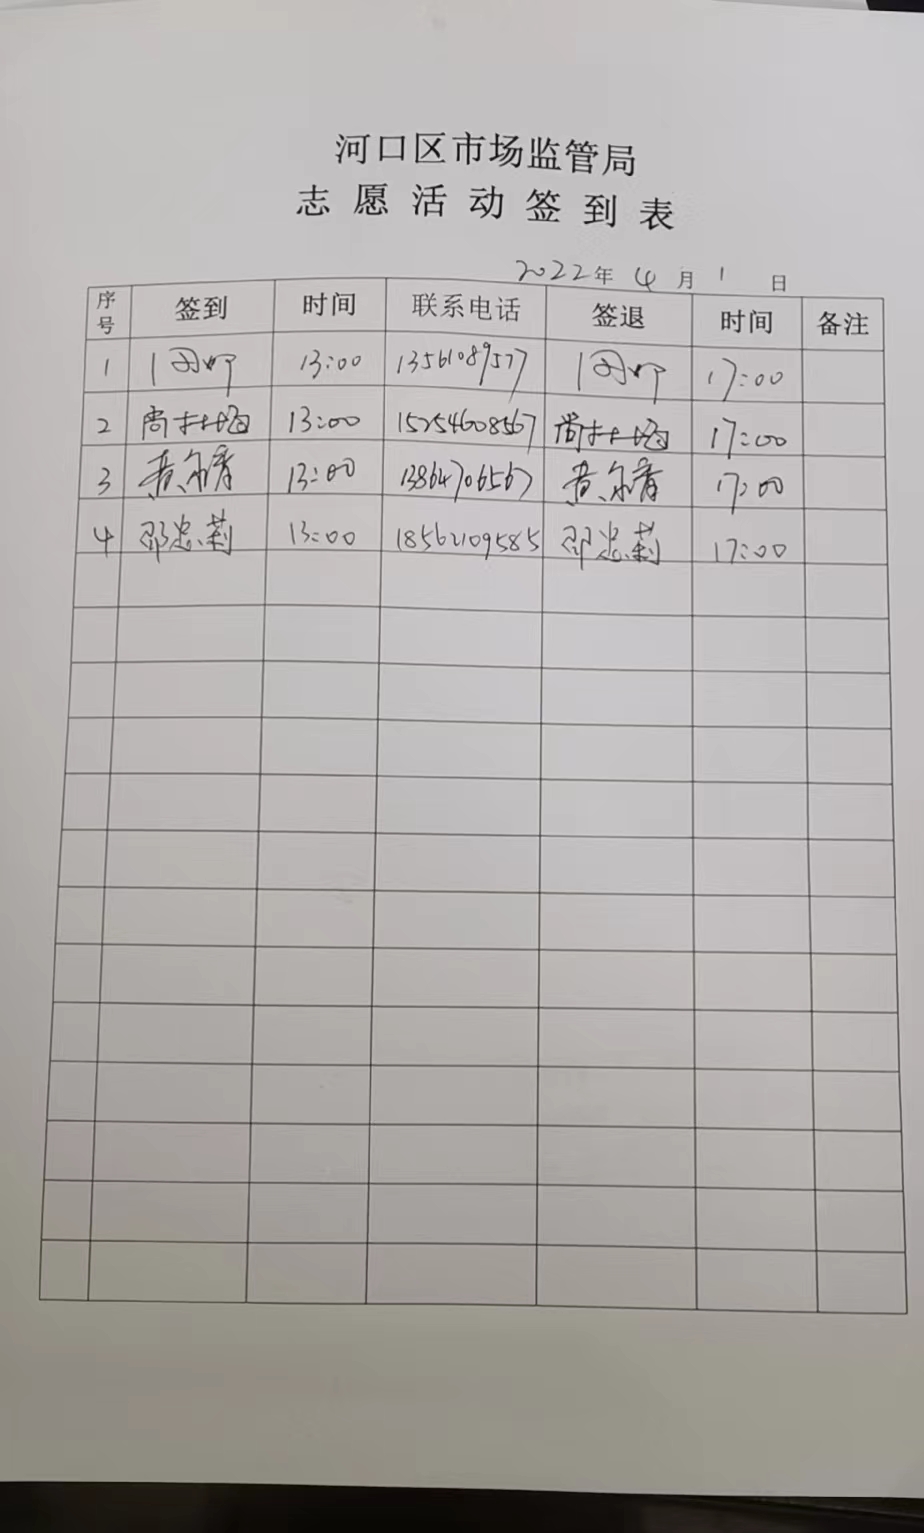 河口区市场监管局
志愿活动签到表
2022年 4月 1日
序号 签到 时间 联系电话 签退 时间 备注
1 13:00 13561089577 17:00
2 13:00 15254608567 17:00
3 13:00 13864706567 17:00
4 邵忠莉 13:00 18562109585 邵忠莉 17:00